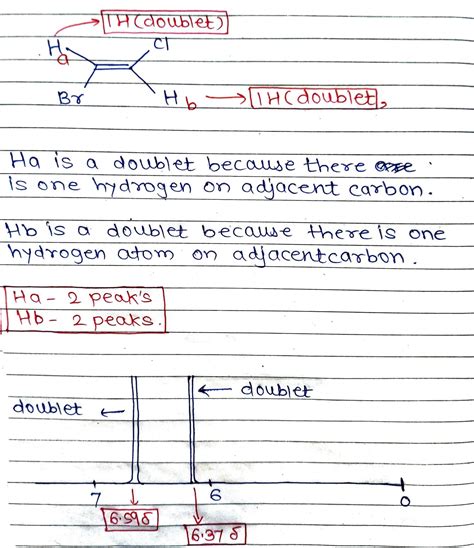 1H(doublet)
H Cl
a
Br H b → 1H(doublet,
Ha is a doublet because there
is one hydrogen on adjacent carbon.
Hb is a doublet because there is one
hydrogen atom on adjacentcarbon.
Ha - 2 peak's
Hb - 2 peaks.
← doublet
doublet ←
7 6 0
6.59δ
6.37 δ